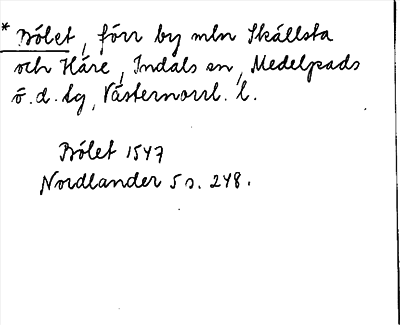 * Bölet, förr by mln Skällsta
och Häre, Indals sn, Medelpads
ö. d. lg, Västernorrl. l.
Bölet 1547
Nordlander 5 s. 248.